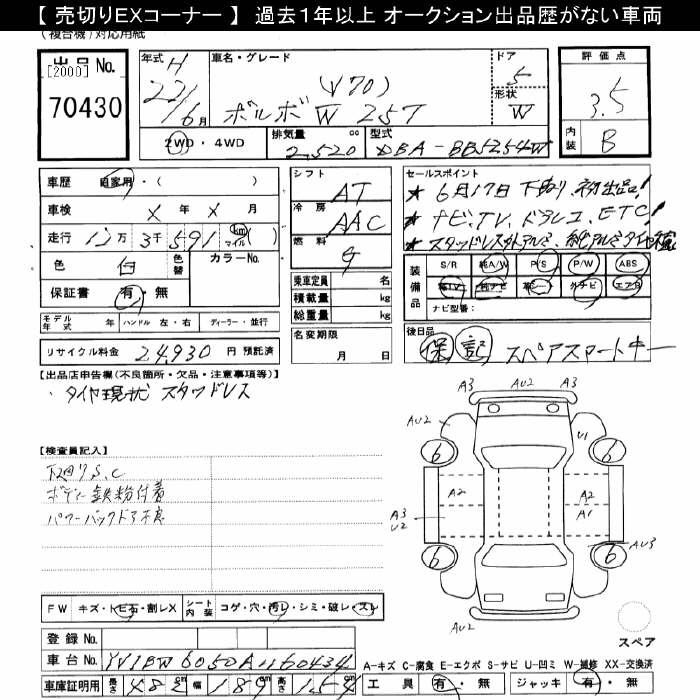 【 売切りEXコーナー 】 過去１年以上 オークション出品歴がない車両
（複合機）対応用紙
出品No.
[2000]
70430
年式 H
22/6月
車名・グレード
(V70)
ボルボ W 25T
ドア
5
形状
W
評価点
3.5
内装
B
2WD・4WD
排気量
2.520
cc
型式
DBA-BB5254W
車歴 自家用・(
車検 X 年 X 月
走行 12万 3千 591 (km マイル)
色 白 色替 カラーNo.
保証書 有・無
シフト
AT
冷房
AAC
燃料
G
乗車定員 名
積載量 kg
総重量 kg
セールスポイント
★ 6月17日 下取り、初出品!
★ ナビ、TV、ドラレコ、ETC!
装備品
S/R 純A/W P/S P/W ABS
純TV 純ナビ 革シート 外ナビ エアB
ナビ型番:
モデル年式 年 ハンドル 左・右 ディーラー・並行
リサイクル料金 24,930 円 預託済
名変期限
月 日
後日品
保 記 スペアスマートキー
【出品店申告欄(不良箇所・欠品・注意事項等)】
・タイヤ現状 スタッドレス
【検査員記入】
下回りS.C
ボデー鉄粉付着
パワーバックドア不良
A3 AU2 A3
AU2 U1
6 6
A2 A2
A3 A1
U2
6 6
AU3
AU2
スペア
FW キズ・トビ石・割レX シート内装 コゲ・穴・汚レ・シミ・破レ・スレ
登録No.
車台No. YV1BW6050A1160434
車庫証明用 長さ 482 cm 幅 189 cm 高さ 154 cm
A-キズ C-腐食 E-エクボ S-サビ U-凹ミ W-補修 XX-交換済
工具 有・無 ジャッキ 有・無